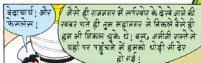 वेदाचार्य! और
फेसलेस!
जैसे ही राजनगर में सर्पस्वार के देखे जाने की
खबर पाते ही तुम महानगर से निकले वैसे ही
हम भी निकल चुके थे। बस, समीपी रास्ते से
यहां पर पहुंचने में हमको थोड़ी सी देर
हो गई।